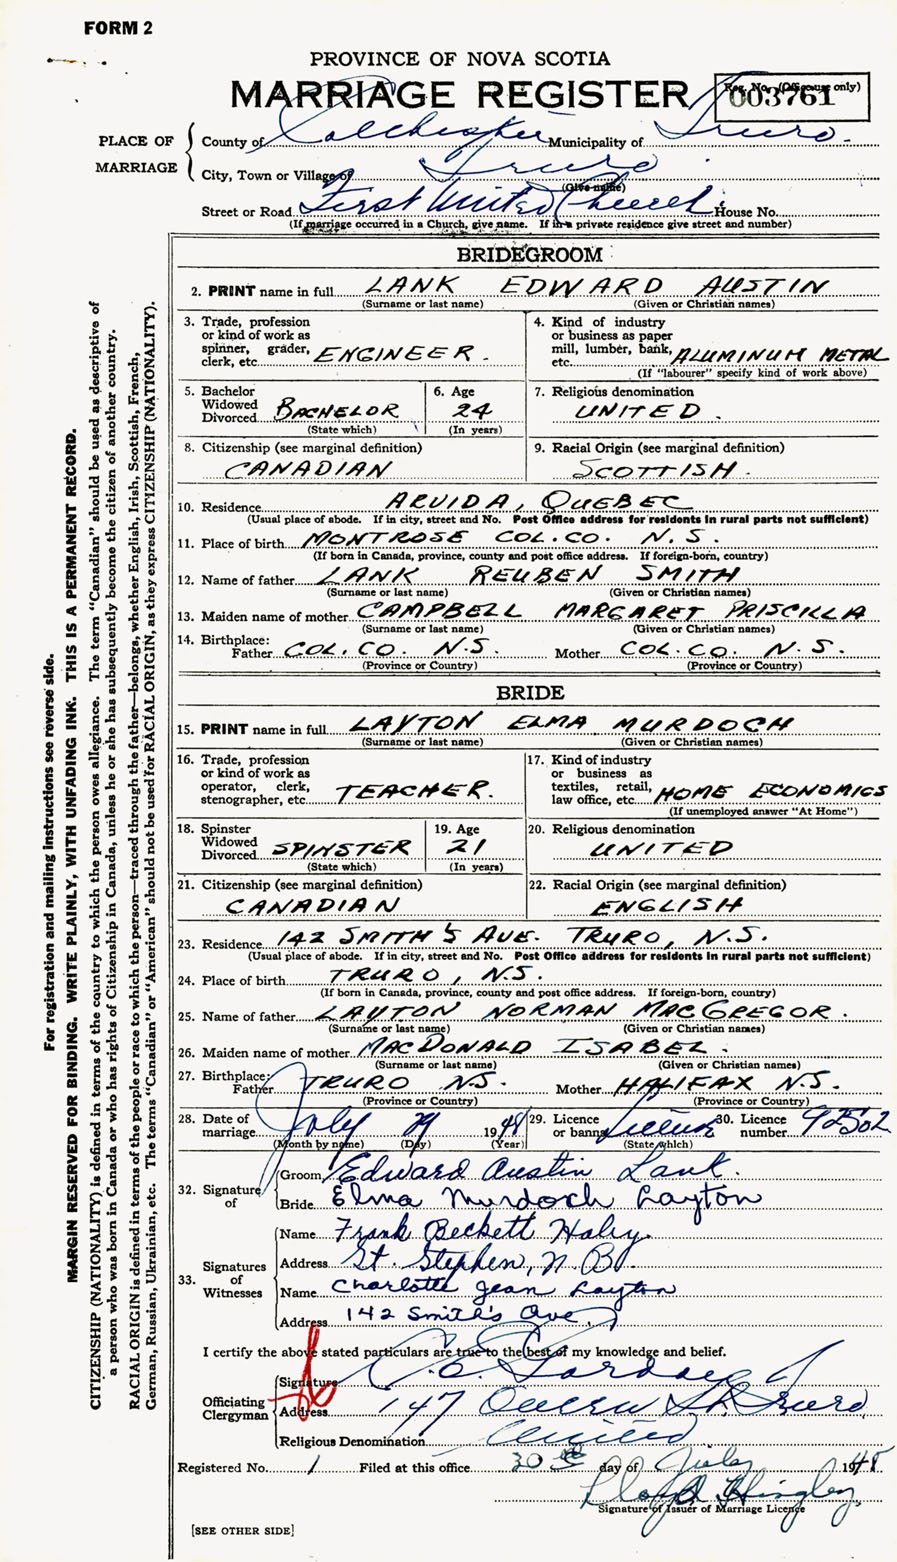 FORM 2
PROVINCE OF NOVA SCOTIA
MARRIAGE REGISTER
Reg. No. (Office use only)
003761
PLACE OF MARRIAGE
County of Colchester Municipality of Truro.
City, Town or Village of Truro.
(Give name)
Street or Road First United Church House No.
(If marriage occurred in a Church, give name. If in a private residence give street and number)
BRIDEGROOM
2. PRINT name in full LANK EDWARD AUSTIN
(Surname or last name) (Given or Christian names)
3. Trade, profession or kind of work as spinner, grader, clerk, etc. ENGINEER.
4. Kind of industry or business as paper mill, lumber, bank, etc. ALUMINUM METAL
(If "labourer" specify kind of work above)
5. Bachelor Widowed Divorced BACHELOR
(State which)
6. Age 24
(In years)
7. Religious denomination UNITED.
8. Citizenship (see marginal definition) CANADIAN
9. Racial Origin (see marginal definition) SCOTTISH.
10. Residence ARVIDA, QUEBEC
(Usual place of abode. If in city, street and No. Post Office address for residents in rural parts not sufficient)
11. Place of birth MONTROSE COL. CO. N.S.
(If born in Canada, province, county and post office address. If foreign-born, country)
12. Name of father LANK REUBEN SMITH
(Surname or last name) (Given or Christian names)
13. Maiden name of mother CAMPBELL MARGARET PRISCILLA
(Surname or last name) (Given or Christian names)
14. Birthplace:
Father COL. CO. N.S. Mother COL. CO. N.S.
(Province or Country) (Province or Country)
BRIDE
15. PRINT name in full LAYTON ELMA MURDOCH
(Surname or last name) (Given or Christian names)
16. Trade, profession or kind of work as operator, clerk, stenographer, etc. TEACHER.
17. Kind of industry or business as textiles, retail, law office, etc. HOME ECONOMICS
(If unemployed answer "At Home")
18. Spinster Widowed Divorced SPINSTER
(State which)
19. Age 21
(In years)
20. Religious denomination UNITED
21. Citizenship (see marginal definition) CANADIAN
22. Racial Origin (see marginal definition) ENGLISH
23. Residence 142 SMITH'S AVE. TRURO, N.S.
(Usual place of abode. If in city, street and No. Post Office address for residents in rural parts not sufficient)
24. Place of birth TRURO, N.S.
(If born in Canada, province, county and post office address. If foreign-born, country)
25. Name of father LAYTON NORMAN MACGREGOR.
(Surname or last name) (Given or Christian names)
26. Maiden name of mother MACDONALD ISABEL.
(Surname or last name) (Given or Christian names)
27. Birthplace:
Father TRURO N.S. Mother HALIFAX N.S.
(Province or Country) (Province or Country)
28. Date of marriage July 1948
(Month by name) (Day) (Year)
29. Licence or banns License
(State which)
30. Licence number 92502
32. Signature of
Groom Edward Austin Lank.
Bride Elma Murdoch Layton
33. Signatures of Witnesses
Name Frank Beckett Haley.
Address St. Stephen, N.B.
Name Charlotte Jean Layton
Address 142 Smith's Ave.,
I certify the above stated particulars are true to the best of my knowledge and belief.
Officiating Clergyman
Signature
Address 147 Queen St. Truro
Religious Denomination United
Registered No. 1 Filed at this office 30 day of July 1948
Lloyd Hingley
Signature of Issuer of Marriage Licence
[SEE OTHER SIDE]
For registration and mailing instructions see reverse side.
MARGIN RESERVED FOR BINDING. WRITE PLAINLY, WITH UNFADING INK. THIS IS A PERMANENT RECORD.
CITIZENSHIP (NATIONALITY) is defined in terms of the country to which the person owes allegiance. The term "Canadian" should be used as descriptive of
a person who was born in Canada or who has rights of Citizenship in Canada, unless he or she has subsequently become the citizen of another country.
RACIAL ORIGIN is defined in terms of the people or race to which the person—traced through the father—belongs, whether English, Irish, Scottish, French,
German, Russian, Ukrainian, etc. The terms "Canadian" or "American" should not be used for RACIAL ORIGIN, as they express CITIZENSHIP (NATIONALITY).